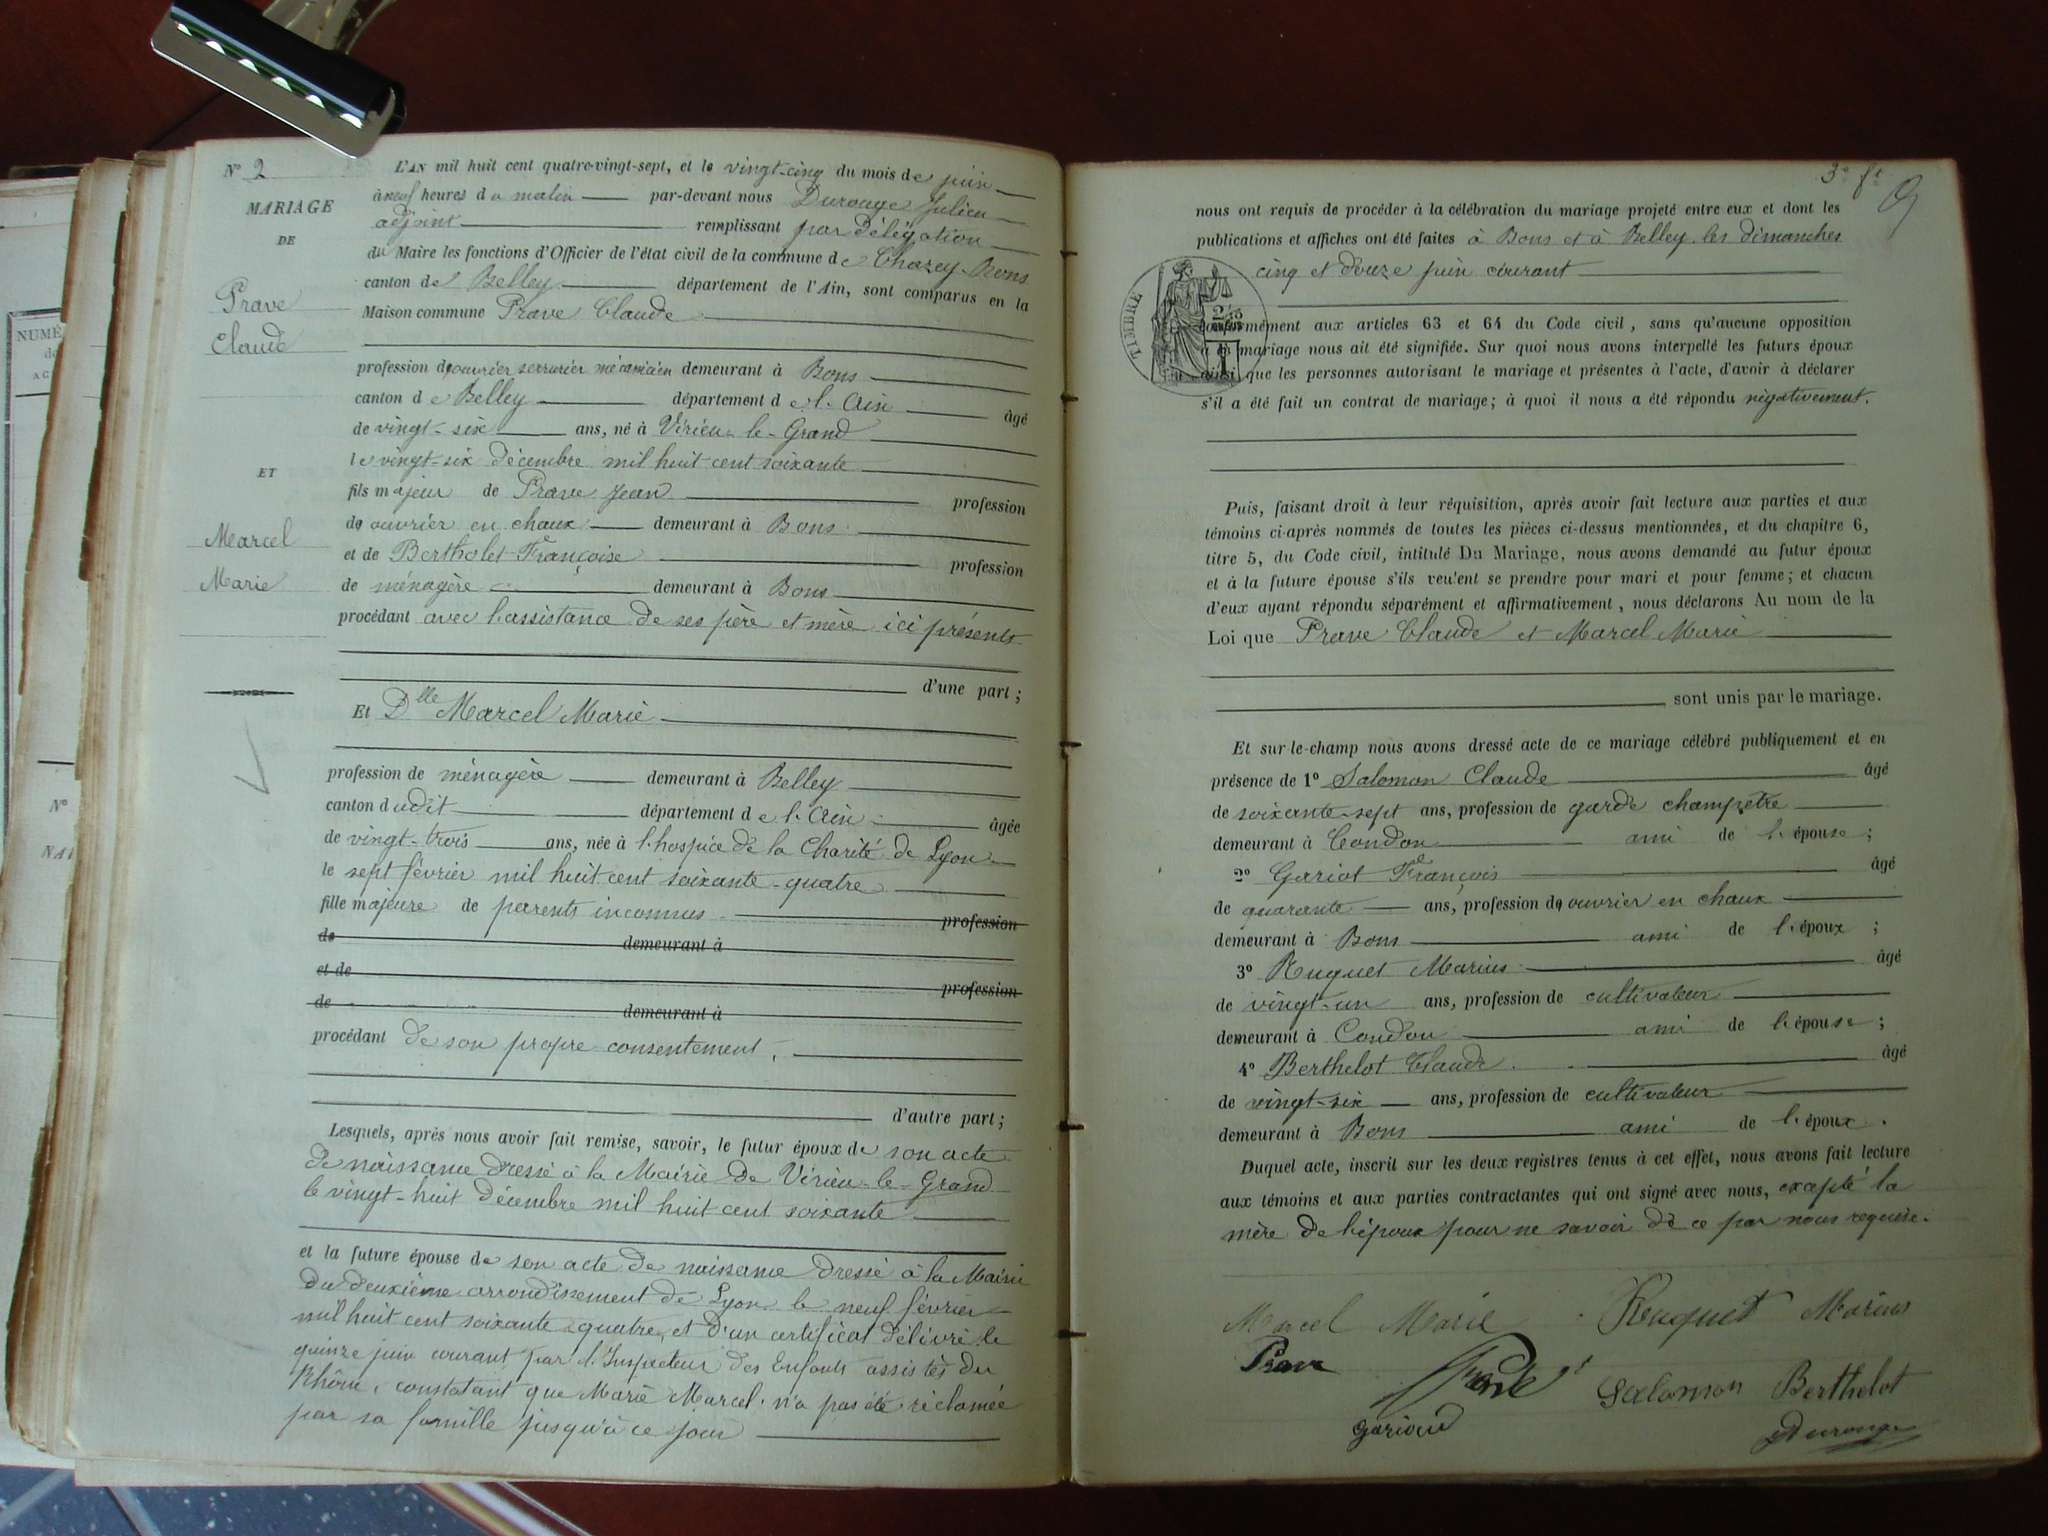 N° 2
MARIAGE
DE
Prave
Claude
ET
Marcel
Marie
L'AN mil huit cent quatre-vingt-sept, et le vingt-cinq du mois de juin
à neuf heures du matin par-devant nous Durouge Julien
adjoint remplissant par délégation
du Maire les fonctions d'Officier de l'état civil de la commune de Chazey-Bons
canton de Belley département de l'Ain, sont comparus en la
Maison commune Prave Claude
profession de ouvrier serrurier mécanicien demeurant à Bons
canton de Belley département de l'Ain âgé
de vingt-six ans, né à Virieu-le-Grand
le vingt-six décembre mil huit cent soixante
fils majeur de Prave Jean profession
de ouvrier en chaux demeurant à Bons
et de Bertholet Françoise profession
de ménagère demeurant à Bons
procédant avec l'assistance de ses père et mère ici présents
d'une part ;
Et Dlle Marcel Marie
profession de ménagère demeurant à Belley
canton dudit département de l'Ain âgée
de vingt-trois ans, née à l'hospice de la Charité de Lyon
le sept février mil huit cent soixante-quatre
fille majeure de parents inconnus profession
de demeurant à
et de profession
de demeurant à
procédant de son propre consentement,
d'autre part ;
Lesquels, après nous avoir fait remise, savoir, le futur époux de son acte
de naissance dressé à la Mairie de Virieu-le-Grand
le vingt-huit décembre mil huit cent soixante
et la future épouse de son acte de naissance dressé à la Mairie
du deuxième arrondissement de Lyon le neuf février
mil huit cent soixante quatre, et d'un certificat délivré le
quinze juin courant par l'Inspecteur des Enfants assistés du
Rhône, constatant que Marie Marcel n'a pas été réclamée
par sa famille jusqu'à ce jour
3e ft
nous ont requis de procéder à la célébration du mariage projeté entre eux et dont les
publications et affiches ont été faites à Bons et à Belley les dimanches
cinq et douze juin courant
TIMBRE
conformément aux articles 63 et 64 du Code civil, sans qu'aucune opposition
à ce mariage nous ait été signifiée. Sur quoi nous avons interpellé les futurs époux
ainsi que les personnes autorisant le mariage et présentes à l'acte, d'avoir à déclarer
s'il a été fait un contrat de mariage ; à quoi il nous a été répondu négativement.
Puis, faisant droit à leur réquisition, après avoir fait lecture aux parties et aux
témoins ci-après nommés de toutes les pièces ci-dessus mentionnées, et du chapitre 6,
titre 5, du Code civil, intitulé Du Mariage, nous avons demandé au futur époux
et à la future épouse s'ils veulent se prendre pour mari et pour femme ; et chacun
d'eux ayant répondu séparément et affirmativement, nous déclarons Au nom de la
Loi que Prave Claude et Marcel Marie
sont unis par le mariage.
Et sur-le-champ nous avons dressé acte de ce mariage célébré publiquement et en
présence de 1° Salomon Claude âgé
de soixante-sept ans, profession de garde champêtre
demeurant à Condon ami de l'épouse ;
2° Gariot François âgé
de quarante ans, profession de ouvrier en chaux
demeurant à Bons ami de l'époux ;
3° Ruquet Marius âgé
de vingt-un ans, profession de cultivateur
demeurant à Condon ami de l'épouse ;
4° Berthelot Claude âgé
de vingt-six ans, profession de cultivateur
demeurant à Bons ami de l'époux.
Duquel acte, inscrit sur les deux registres tenus à cet effet, nous avons fait lecture
aux témoins et aux parties contractantes qui ont signé avec nous, excepté la
mère de l'époux pour ne savoir de ce par nous requise.
Marcel Marie Ruquet Marius
Prave
Salomon Berthelot
Durouge